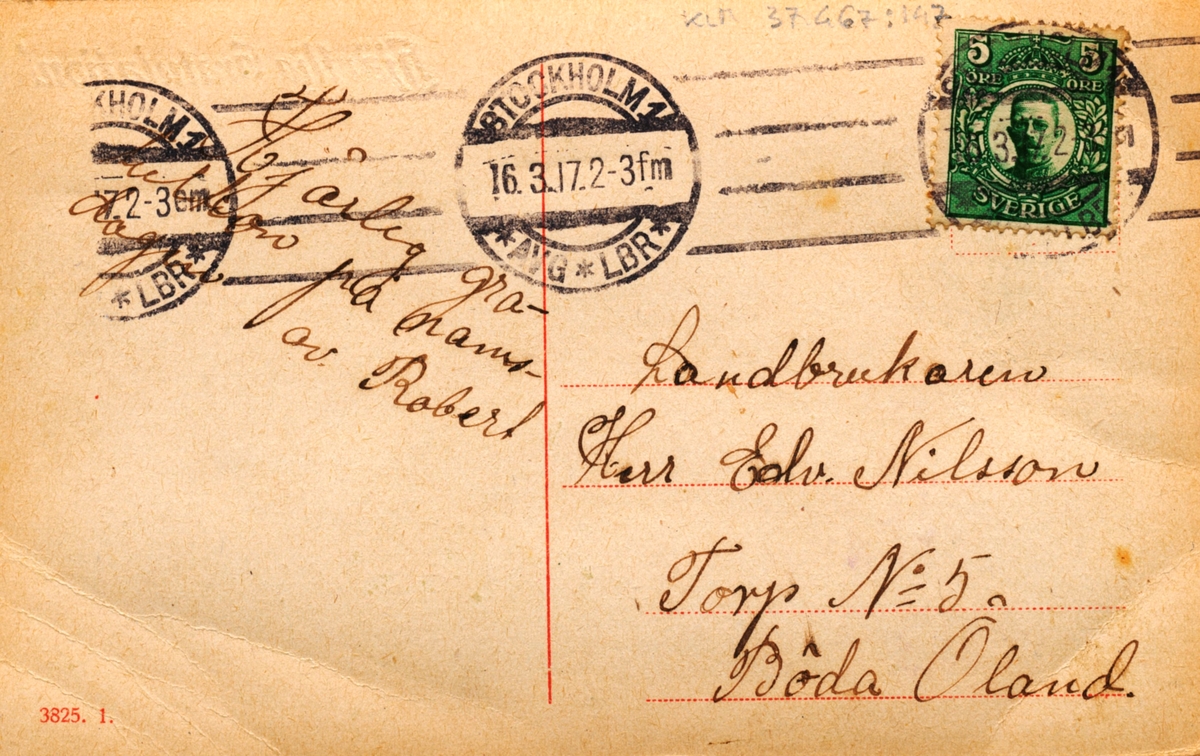 KLM 37.467:147
5 5
ÖRE ÖRE
SVERIGE
STOCKHOLM 1
16.3.17.2-3fm
*AVG*LBR*
KHOLM 1
17.2-3em
*LBR*
Hjärlig gra-
på nams-
av Robert
Landbrukaren
Herr Edv. Nilsson
Torp No 5.
Bôda Öland.
3825. 1.